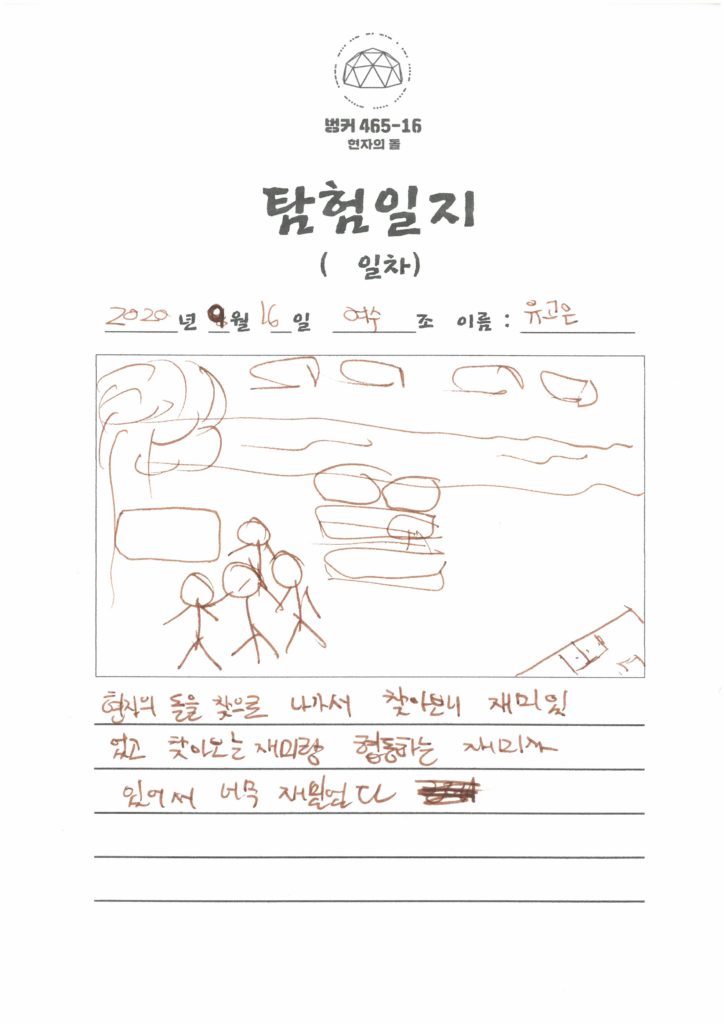 벙커 465-16
현자의 돌
탐험일지
( 일차)
2020 년 9월 16 일 여수 조 이름 : 유고은
현자의 돌을 찾으로 나가서 찾아보니 재미있
었고 찾아오는 재미랑 협동하는 재미가
있어서 너무 재밌었다